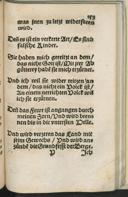 was jnen zu letzt widerfaren
wird.
Deñ es ist ein verkerte Art / Es sind
falsche Kinder.
Sie haben mich gereitzt an dem /
das nicht Gott ist / Mit jrer Ab
götterey habē sie mich erzürnet.
Und ich wil sie wider reitzen an
dem / das nicht ein Volck ist /
An einem nerrichten Volck wil
ich sie erzürnen.
Deñ das Fewr ist angangen durch
meinen Zorn / Und wird brennen
bis in die untersten Helle.
Und wird verzeren das Land mit
seim Gewechs / Und wird anzünden
die Grundfeste der Berge.
Ich